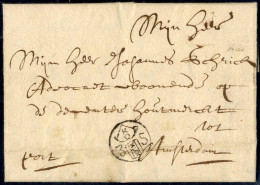 Mijn Heer
Mijn Heer Johannes Schrick
Advocaet woonende op
de deventer houtmerckt
tot
port Amsterdam